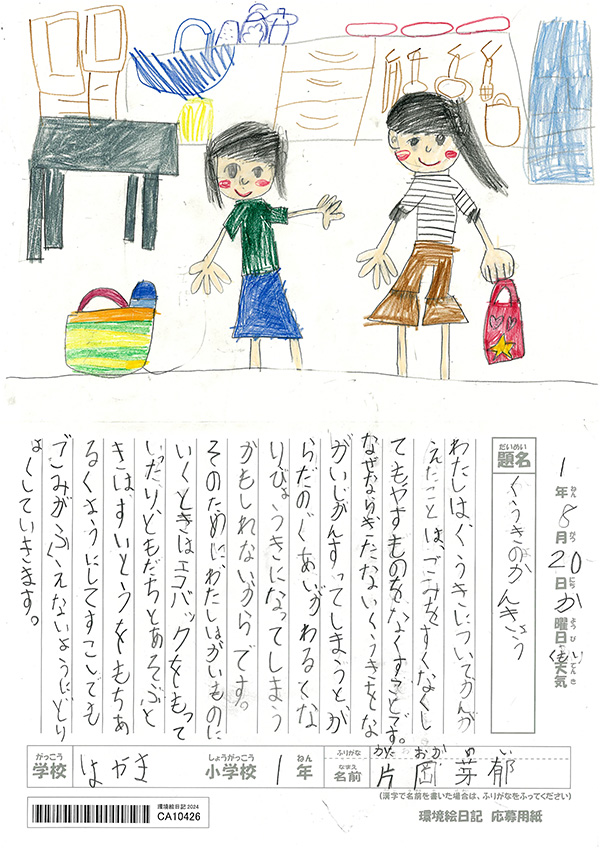 1年8月20日か曜日 天気くもり
ねん がつ にち ようび てんき
だいめい
題名 くうきのかんきょう
わたしは、くうきについてかんが
えたことは、ごみをすくなくし
てもやすものをなくすことです。
なぜならきたないくうきをな
がいじかんすってしまうとか
らだのぐあいがわるくな
りびょうきになってしまう
かもしれないからです。
そのためにわたしはがいものに
いくときはエコバックをもって
いったり、ともだちとあそぶと
きは、すいとうをもちあ
るくようにしてすこしでも
ごみがふえないようにどり
ょくしていきます。
がっこう しょうがっこう ねん ふりがな かた おか め い
学校 はやき 小学校 1年 なまえ 名前 片岡芽郁
(漢字で名前を書いた場合は、ふりがなをふってください)
環境絵日記 2024
CA10426
環境絵日記 応募用紙